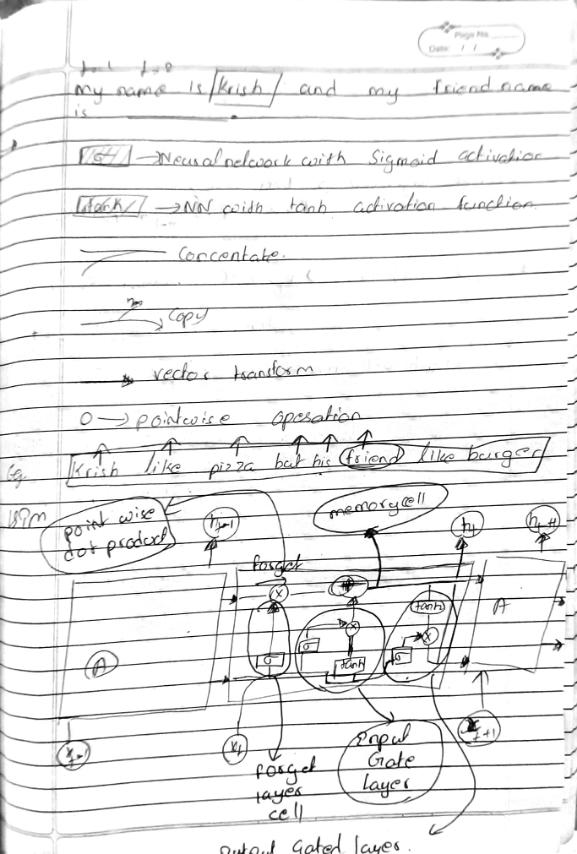 Page No.
Date: / /
t=1 t=0
My name is Krish and my friend name
is ________.
σ → Neural network with sigmoid activation
tanh → NN with tanh activation function
Concentate.
copy
vector transform
O → pointwise operation
Eg. Krish like pizza but his friend like burger
LSTM
point wise
dot product
h t-1
memory cell
ht
h t+1
forget
x
+
tanh
A
x
x
σ
σ
tanh
σ
A
x t-1
xt
x t+1
forget
layer
cell
Input
Gate
layer
Output Gated layer.